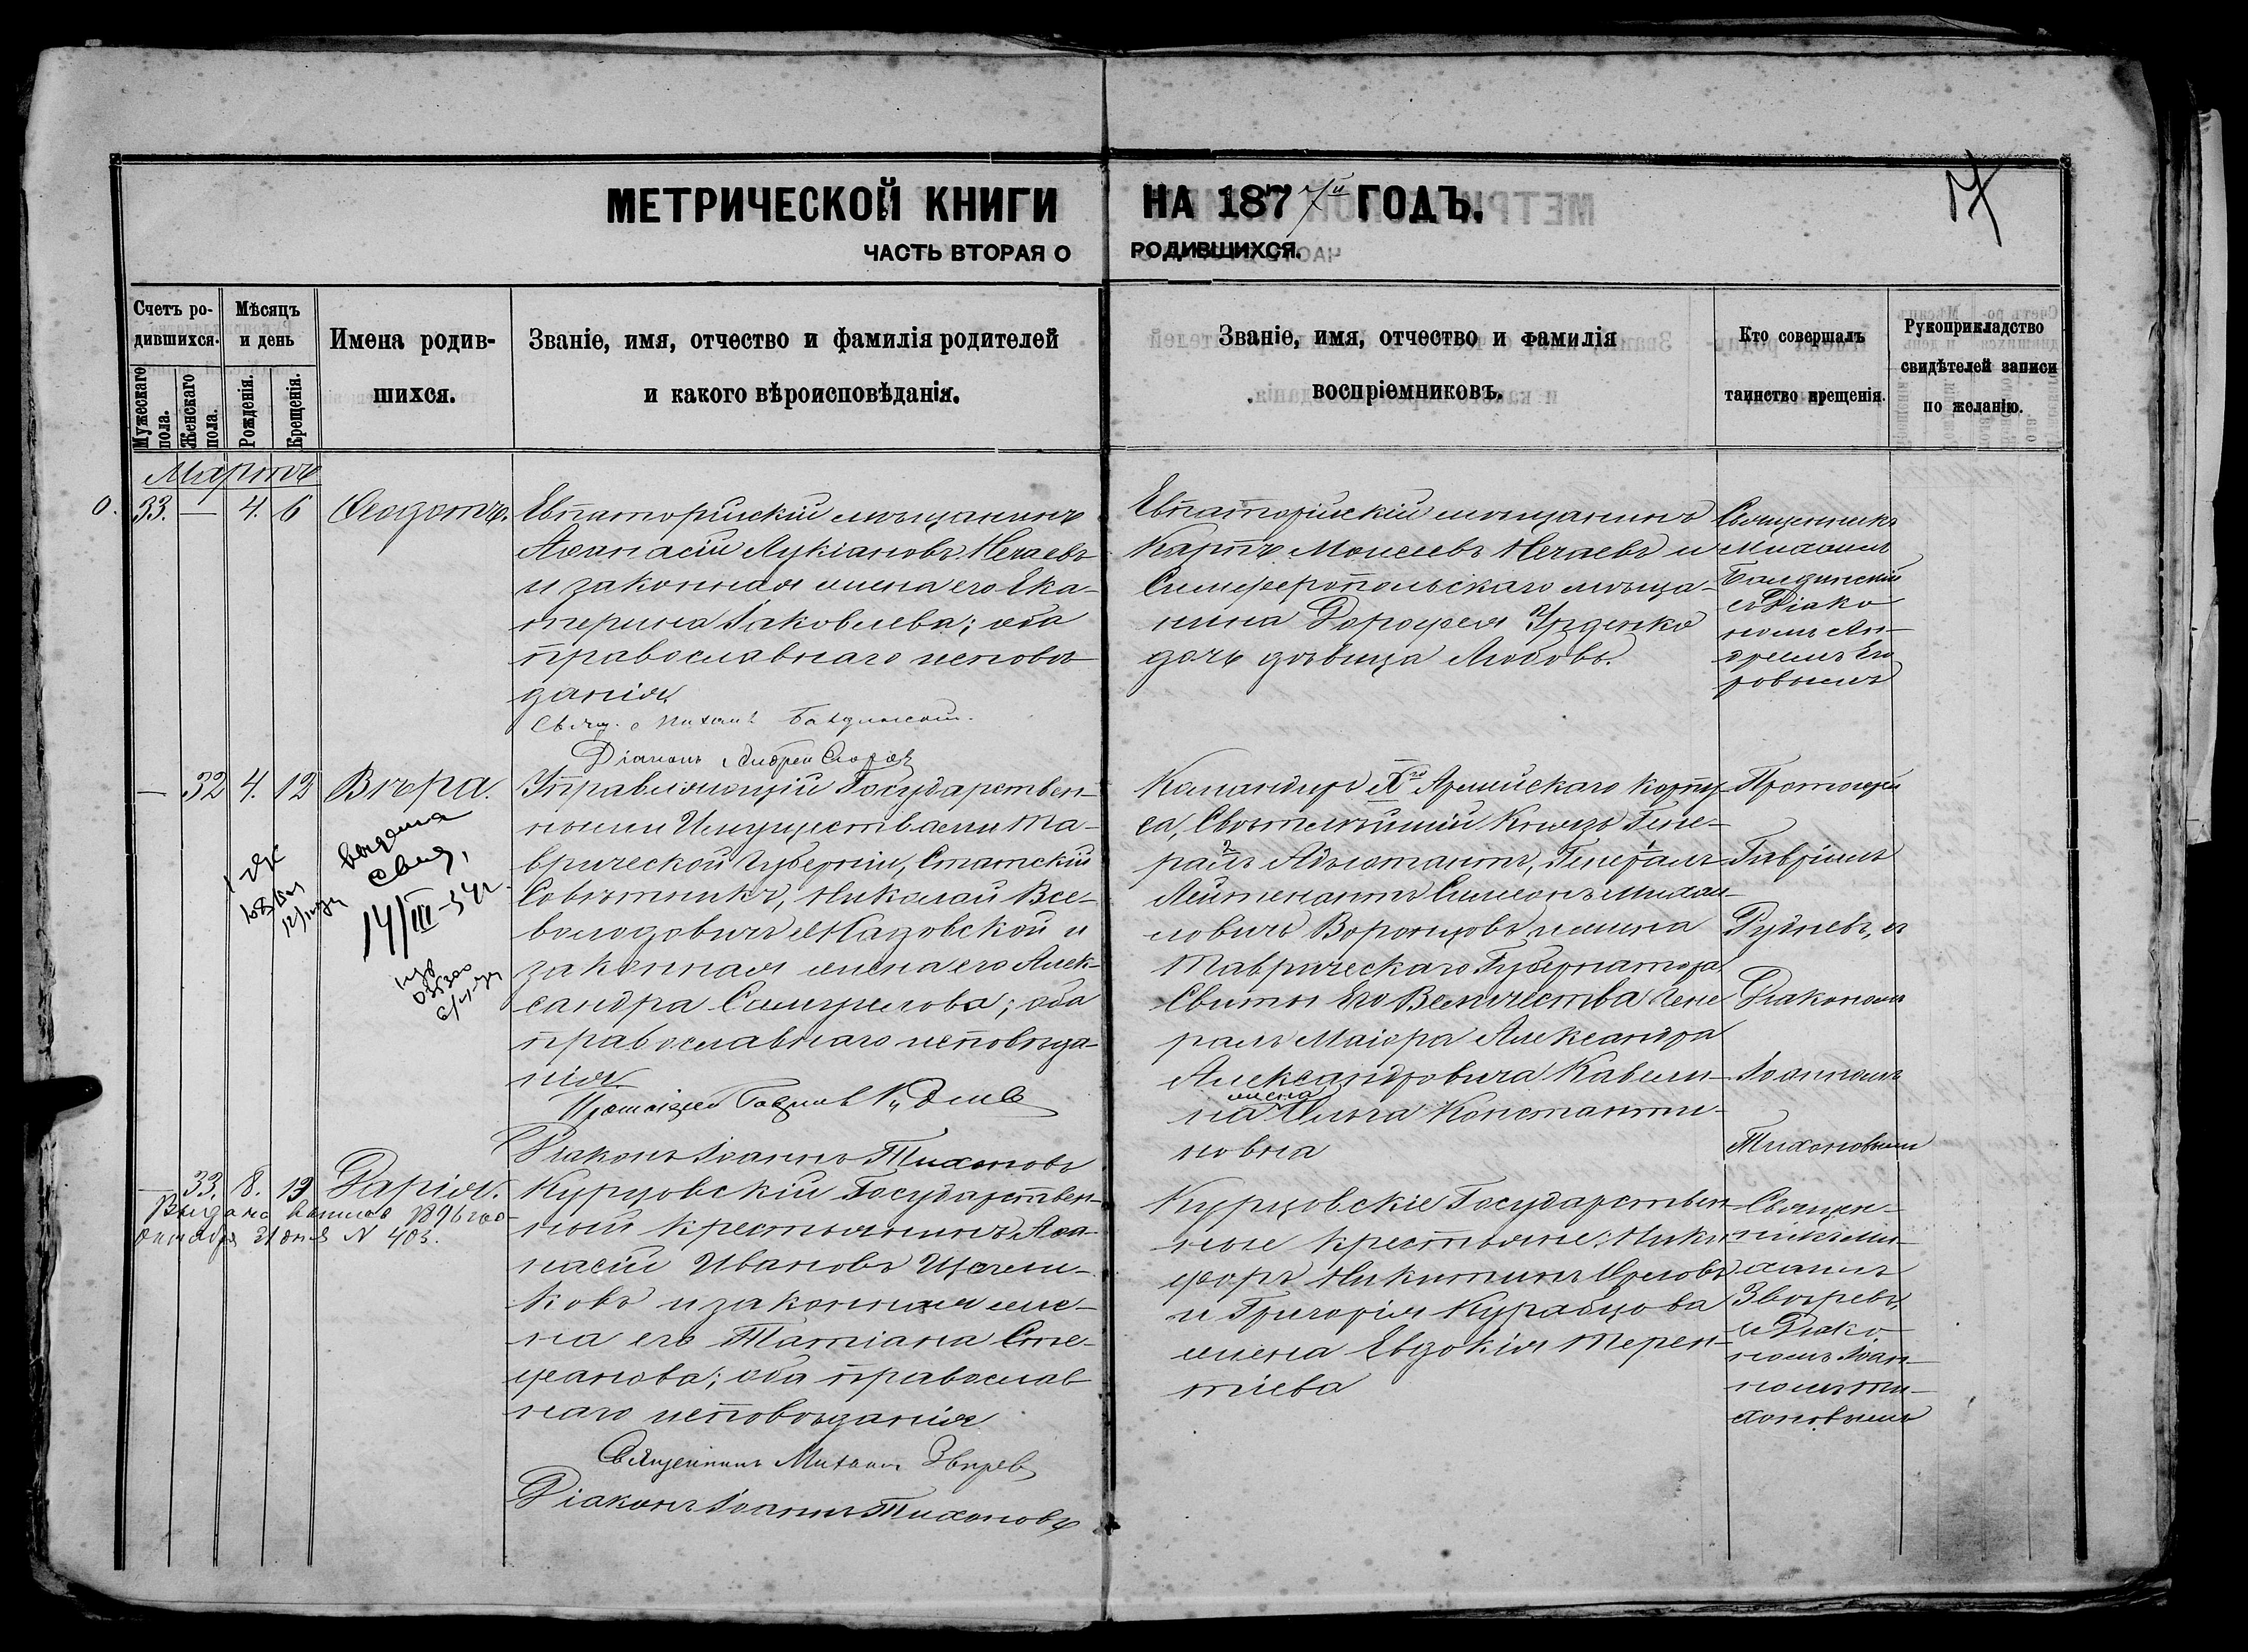 МЕТРИЧЕСКОЙ КНИГИ
ЧАСТЬ ВТОРАЯ О
НА 1877й ГОДЪ.
РОДИВШИХСЯ.
Счетъ ро-
дившихся.
Мужескаго пола.
Женскаго пола.
Мѣсяцъ
и день
Рожденія.
Крещенія.
Имена родив-
шихся.
Званіе, имя, отчество и фамилія родителей
и какого вѣроисповѣданія.
Званіе, имя, отчество и фамилія
воспріемниковъ.
Кто совершалъ
таинство крещенія.
Рукоприкладство
свидѣтелей записи
по желанію.
Мартъ
33. — 4. 6 Ѳеодотъ.
Евпаторійскій мѣщанинъ
Аѳанасій Лукіановъ Нечаевъ
и законная жена его Ека-
терина Іаковлева; оба
православнаго исповѣ-
данія
Свящ. Михаилъ
Діаконъ Андрей
Евпаторійскій мѣщанинъ
Карпъ Моисеевъ Нечаевъ и
Симферопольскаго мѣща-
нина Дорофея
дочь дѣвица Любовь.
Священникъ
Михаилъ
съ Діако
номъ Ан-
дреемъ Его
ровымъ
— 32 4. 12 Вѣра.
выдана
свид.
14/III-54г.
Управляющій Государствен-
ными Имуществами Та-
врической Губерніи, Статскій
Совѣтникъ, Николай Все-
володовичъ Мазовской и
законная жена его Алек-
сандра Самуилова; оба
православнаго исповѣда-
нія
Діаконъ Іоаннъ Тихоновъ
Командиръ Армейскаго корпу-
са, Свѣтлѣйшій Князь Гене-
ралъ Адъютантъ, Генералъ
Лейтенантъ Симеонъ Михаи-
ловичъ Воронцовъ и жена
Таврическаго Губернатора
Свиты Его Величества Гене
ралъ Маіора Александра
Александровича Кавели-
на жена Ольга Константи-
новна
Протоіерей
Гавріилъ
Рудневъ, съ
Діакономъ
Іоанномъ
Тихоновымъ
— 33. 8. 13 Дарія.
Выдана 1896 год
октября 31 дня N 403.
Курцовскій Государствен-
ный крестьянинъ Аѳа-
насій Ивановъ
ковъ и законная же-
на его Татіана Сте-
фанова; оба православ
наго исповѣданія
Священникъ Михаилъ Звѣревъ
Діаконъ Іоаннъ Тихоновъ
Курцовскіе Государствен-
ные крестьяне: Ники
форъ Никитинъ Орловъ
и Григорія Курабцова
жена Евдокія Терен-
тіева
Священ-
никъ Ми-
хаилъ
Звѣревъ,
съ Діако
номъ Іоан-
номъ Ти-
хоновымъ